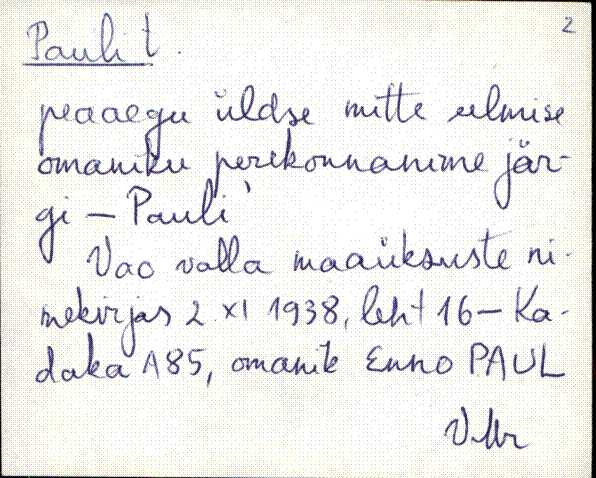 2
Pauli t.
peaaegu üldse mitte eelmise
omaniku perekonnanime jär-
gi — Pauli`
Vao valla maaüksuste ni-
mekirjas 2 XI 1938, leht 16 — Ka-
daka A85, omanik Enno PAUL